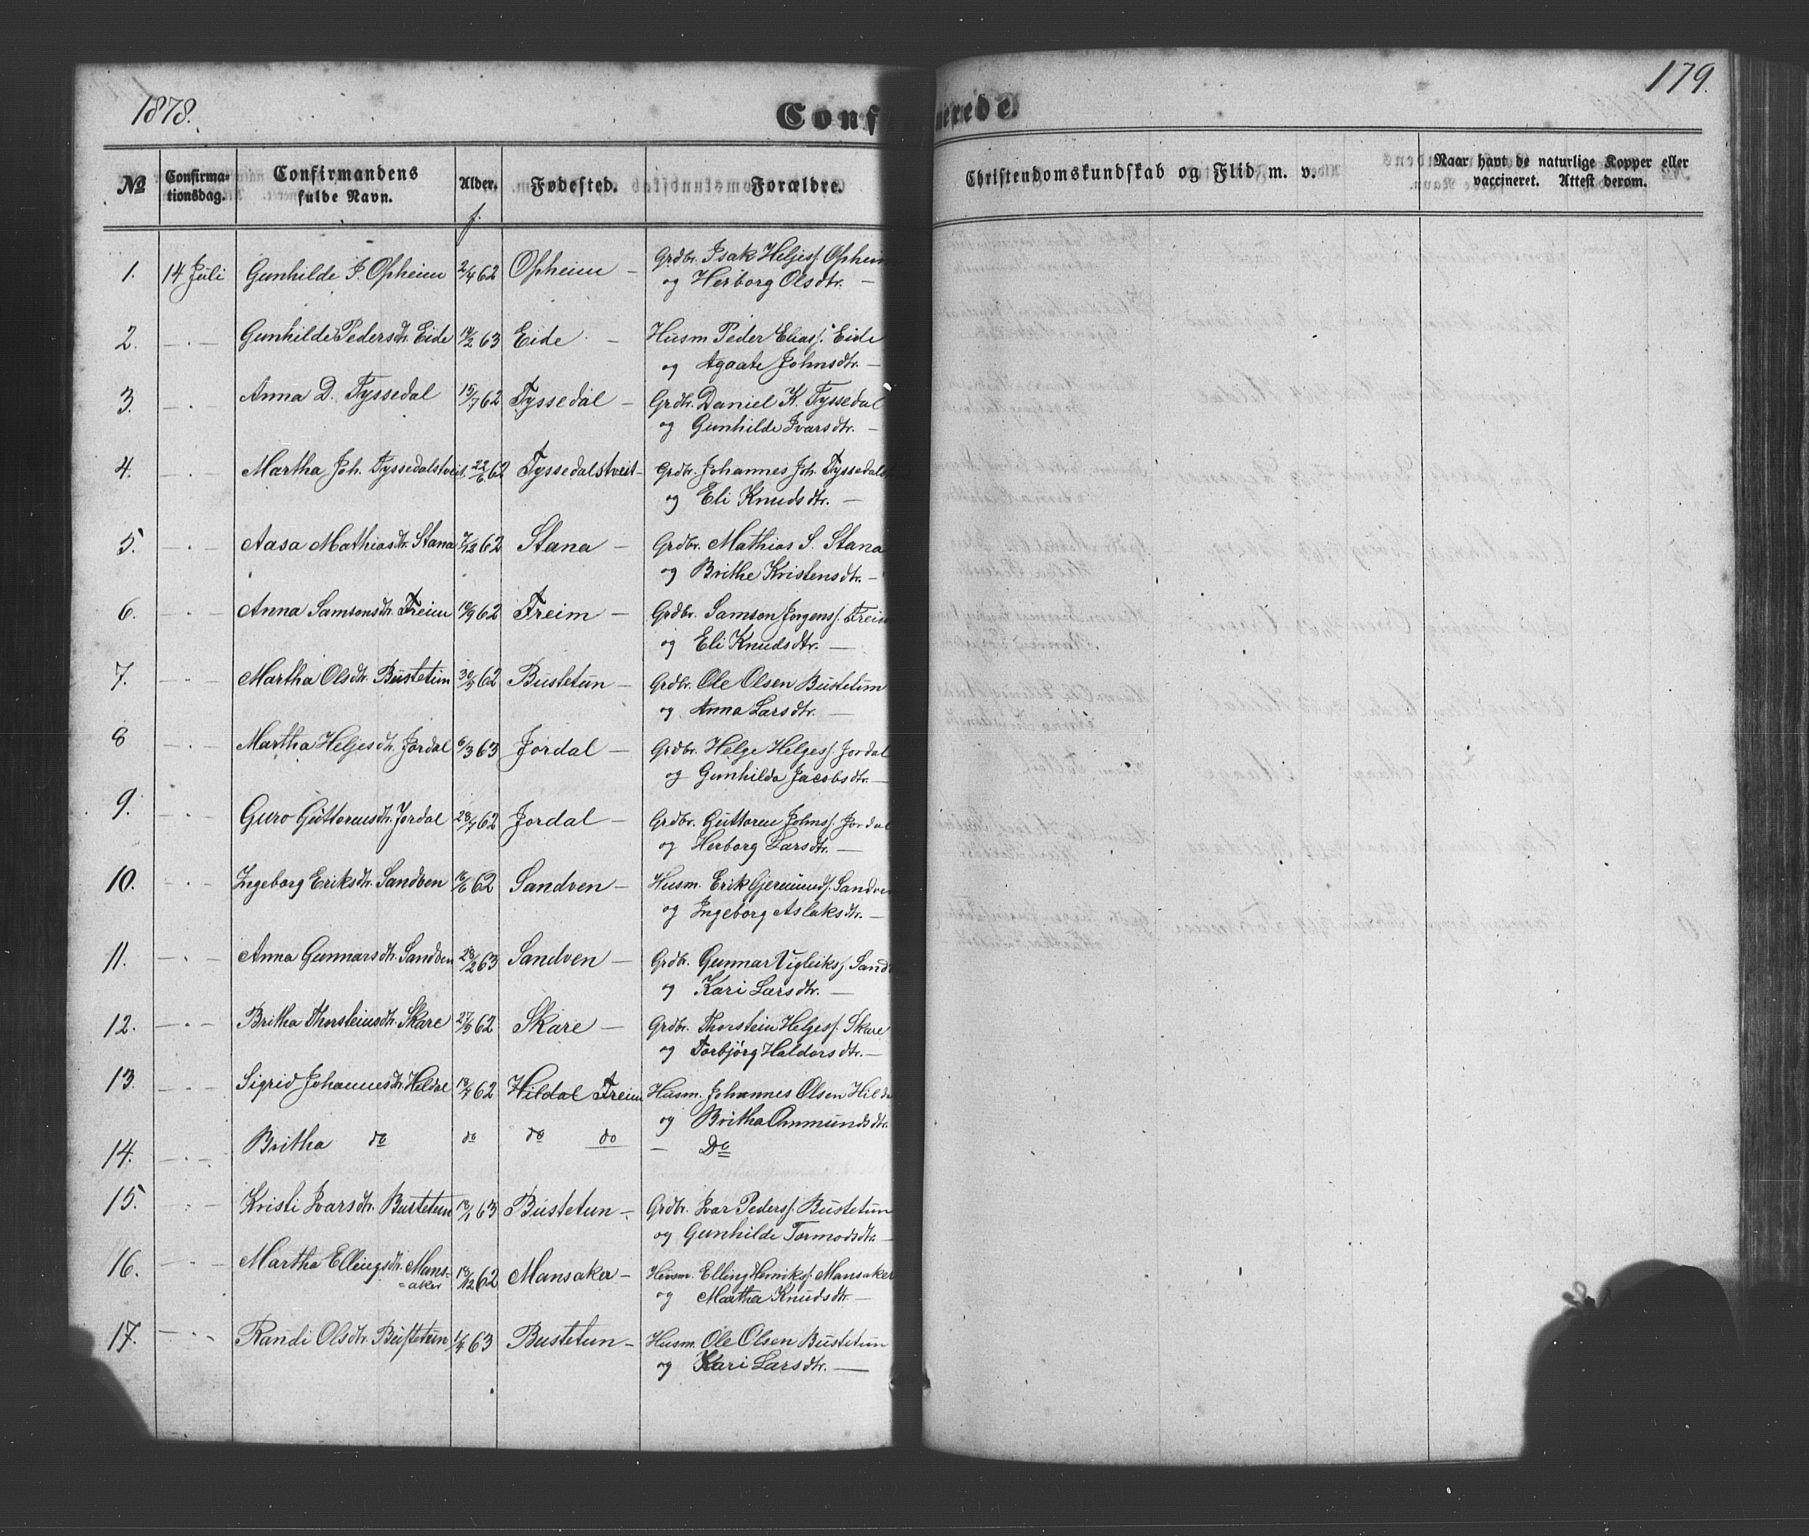 1878.
179.
Confirmerede.
No
Confirmationsdag.
Confirmandens fulde Navn.
Alder.
Fødested.
Forældre.
Christendomskundskab og Flid, m. v.
Naar havt de naturlige Kopper eller vaccineret. Attest derom.
f.
1. 14 Juli Gunhilde I. Opheim 2/4 62 Opheim — Grdbr. Isak Heljes. Opheim
og Herborg Olsdtr. —
2. — " — Gunhilde Pedersdtr. Eide 63 Eide — Husm Peder Elias. Eide
og Agaate Johnsdtr. —
3. — " — Anna D. Tyssedal 15/7 62 Tyssedal — Grdbr. Daniel K. Tyssedal
og Gunhilde Ivarsdtr. —
4. — " — Martha Joh. Tyssedalstveit 22/6 62 Tyssedalstveit — Grdbr. Johannes Joh. Tyssedals
og Eli Knudsdtr. —
5. — " — Aasa Mathiasdtr. Stana 62 Stana — Grdbr. Mathias S. Stana
og Brithe Kristensdtr. —
6. — " — Anna Samsonsdtr. Freim 62 Freim — Grdbr. Samson Jørgens. Freim
og Eli Knudsdtr. —
7. — " — Martha Olsdtr. Bustetun 62 Bustetun — Grdbr. Ole Olsen Bustetun
og Anna Larsdtr. —
8 — " — Martha Heljesdtr. Jordal 6/3 63 Jordal — Grdbr. Helge Helges. Jordal
og Gunhilda Jacobsdtr. —
9. — " — Guro Guttormsdtr. Jordal 62 Jordal — Grdbr. Guttorm Johns. Jordal
og Herborg Larsdtr. —
10. — " — Ingeborg Eriksdtr. Sandven 62 Sandven — Husm. Erik Gjermunds. Sandven
og Ingeborg Aslaksdtr. —
11. — " — Anna Gunnarsdtr. Sandven 28/2 63 Sandven — Grdbr. Gunnar Vigleiks. Sand
og Kari Larsdtr. —
12. — " — Britha Thorsteinsdtr. Skare 62 Skare — Grdbr. Thorstein Helges. Skare
og Torbjörg Haldorsdtr. —
13. — " — Sigrid Johannesdtr. Hildal 62 Hildal Freim Husm. Johannes Olsen Hilda
og Britha Ommundsdtr.
14. — " — Britha do do do do — Do
15. — " — Kristi Ivarsdtr. Bustetun 63 Bustetun — Grdbr. Ivar Peders. Bustetun
og Gunhilde Tormodsdtr. —
16. — " — Martha Ellingsdtr. Mans=
=aker 62 Mansaker — Husm. Elling Henriks. Mansaker
og Martha Knudsdtr. —
17. — " — Randi Olsdtr. Bustetun 63 Bustetun — Husm. Ole Olsen Bustetun
og Kari Larsdtr. —